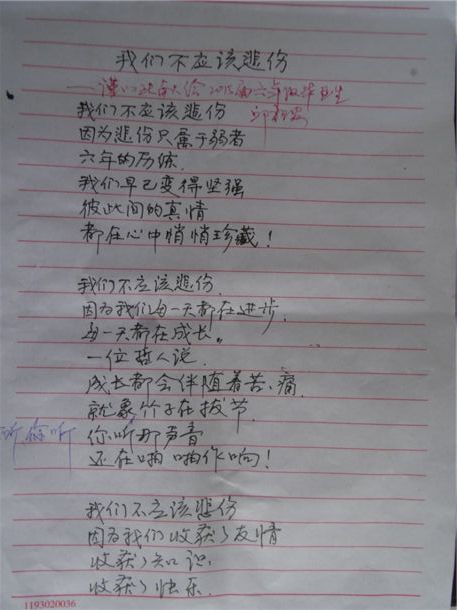 我们不应该悲伤
——谨以此献给2015届六年级毕业生
我们不应该悲伤
因为悲伤只属于弱者
六年的历练
我们早已变得坚强
彼此间的真情
都在心中悄悄珍藏！
我们不应该悲伤
因为我们每一天都在进步，
每一天都在成长。
一位哲人说
成长都会伴随着苦、痛
就象竹子在拔节
你听那声音
还在啪啪作响！
我们不应该悲伤
因为我们收获了友情
收获了知识
收获了快乐
1193020036